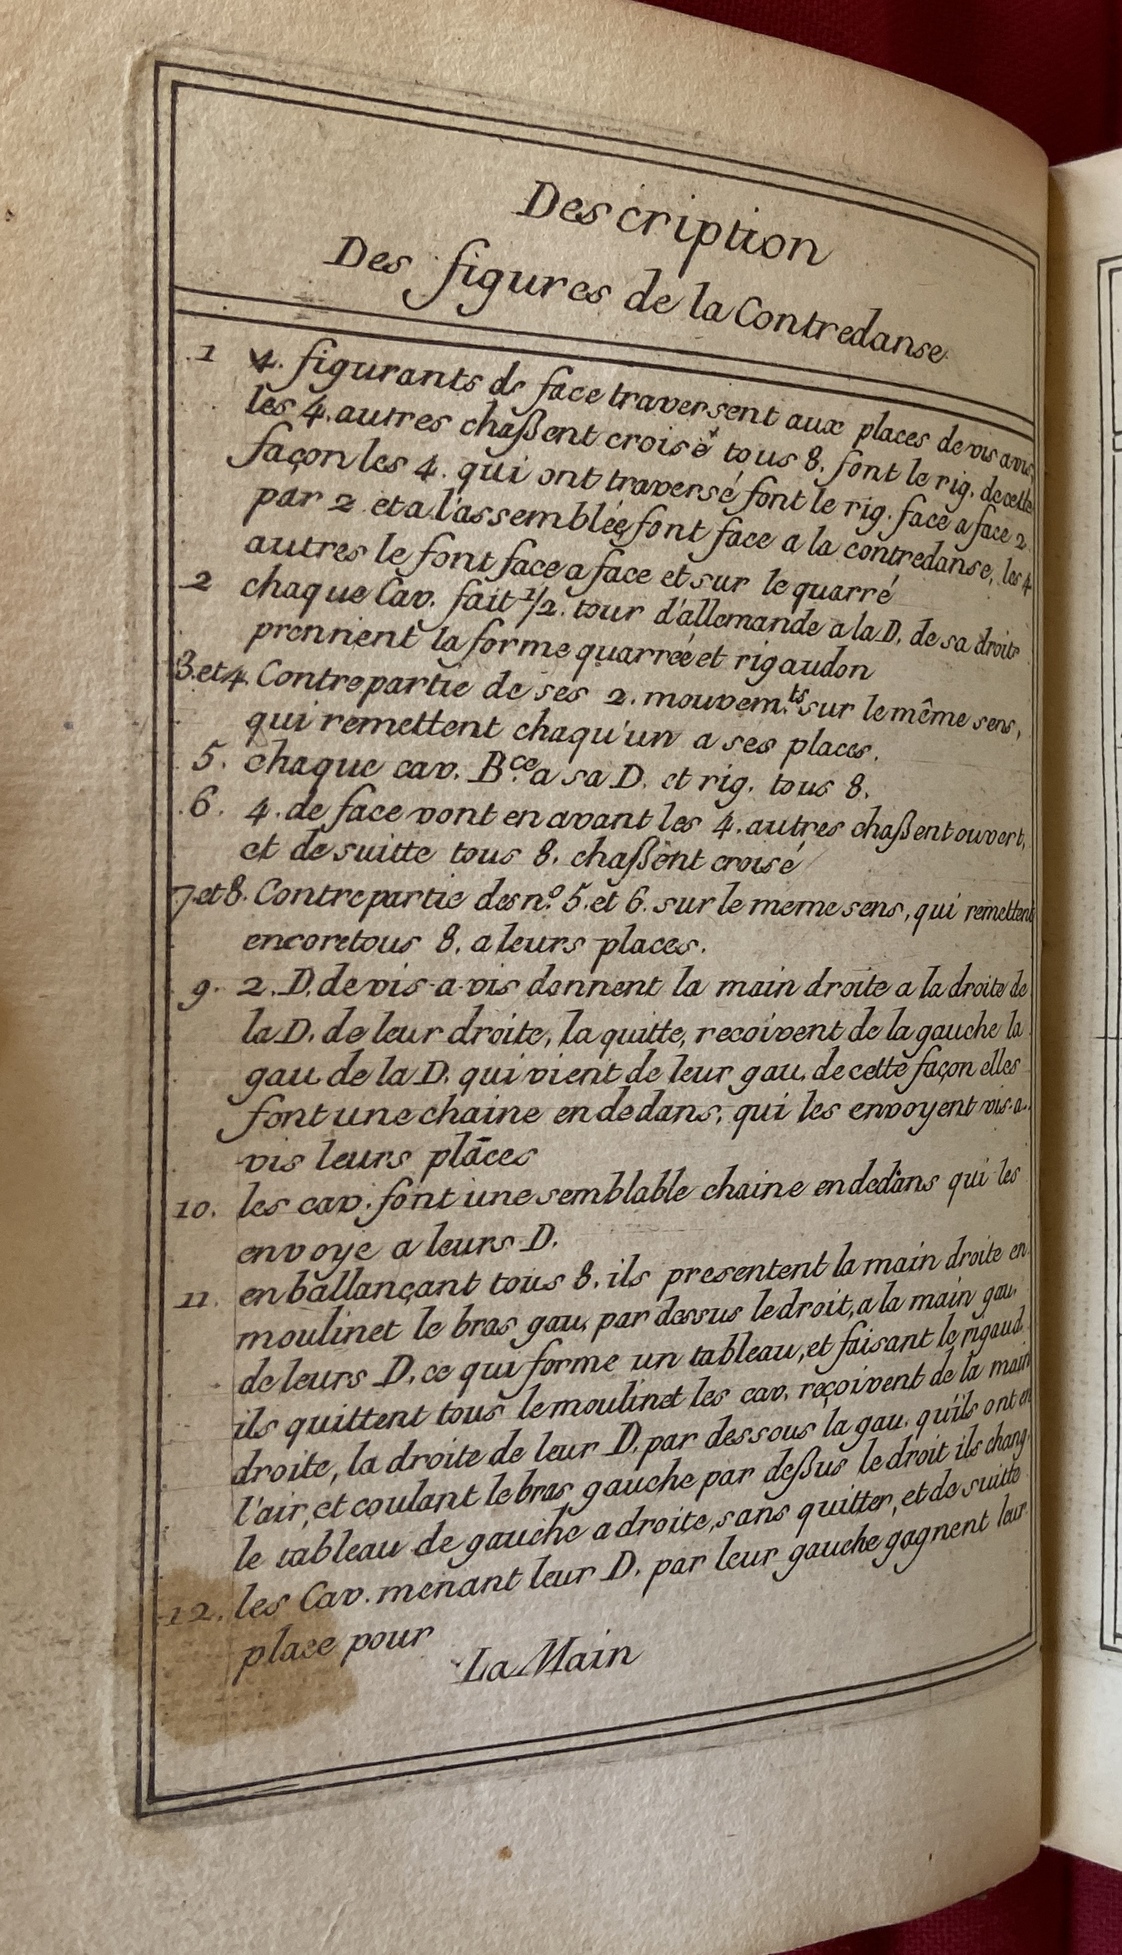 Description
Des figures de la Contredanse
1 4. figurants de face traversent aux places de vis avis
les 4. autres chaßent croisé tous 8. font le rig. de cette
façon les 4. qui ont traversé font le rig. face a face 2
par 2 et a l'assemblée font face a la contredanse, les 4
autres le font face a face et sur le quarré
2 chaque Cav. fait 1/2. tour d'allemande a la D. de sa droite
prennent la forme quarreé et rigaudon
3. et 4. Contrepartie de ses 2. mouvem.ts sur le même sens,
qui remettent chaqu'un a ses places.
5. chaque cav. B.ce a sa D. et rig. tous 8.
6. 4. de face vont en avant les 4. autres chaßent ouvert,
et de suitte tous 8. chaßent croisé
7. et 8. Contrepartie des n.º 5. et 6. sur le meme sens, qui remettent
encore tous 8. a leurs places.
9. 2. D. de vis-a-vis donnent la main droite a la droite de
la D. de leur droite, la quitte, recoivent de la gauche la
gau. de la D. qui vient de leur gau. de cette façon elles
font une chaine en dedans, qui les envoyent vis-a-
vis leurs places
10. les cav. font une semblable chaine en dedans qui les
envoye a leurs D.
11. en ballançant tous 8. ils presentent la main droite en
moulinet le bras gau. par dessus le droit, a la main gau.
de leurs D. ce qui forme un tableau, et faisant le rigaud.
ils quittent tous le moulinet les cav. reçoivent de la main
droite, la droite de leur D. par dessous la gau. qu'ils ont en
l'air, et coulant le bras gauche par deßus le droit ils chang.
le tableau de gauche a droite, sans quitter, et de suitte
12. les Cav. menant leur D. par leur gauche gagnent leur
place pour
La Main